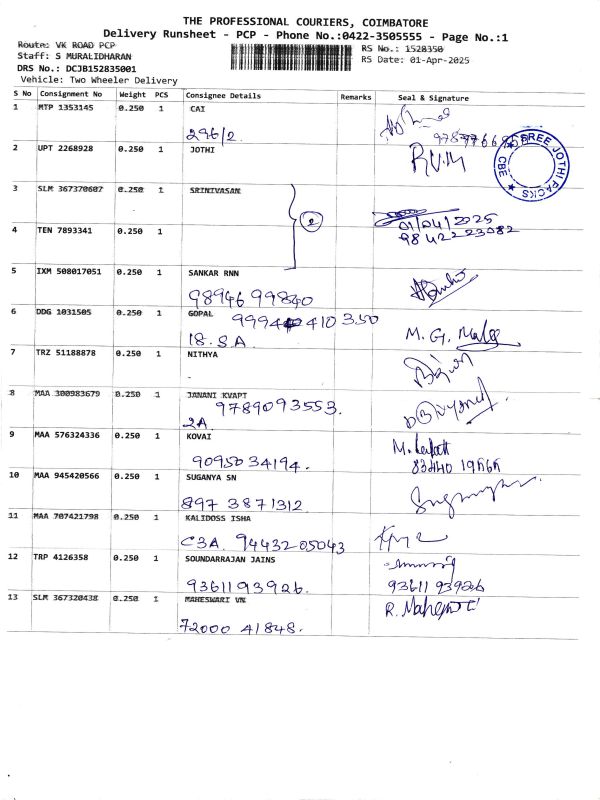 THE PROFESSIONAL COURIERS, COIMBATORE
Delivery Runsheet - PCP - Phone No.:0422-3505555 - Page No.:1
Route: VK ROAD PCP
RS No.: 1528350
Staff: S MURALIDHARAN
RS Date: 01-Apr-2025
DRS No.: DCJB152835001
Vehicle: Two Wheeler Delivery
S No Consignment No Weight PCS Consignee Details Remarks Seal & Signature
1 MTP 1353145 0.250 1 CAI
296/2
2 UPT 2268928 0.250 1 JOTHI
SREE JOTHI PACKS ★ CBE ★
3 SLM 367370607 0.250 1 SRINIVASAN
2
01/04/2025
4 TEN 7893341 0.250 1
98422 23082
5 IXM 508017051 0.250 1 SANKAR RNN
98946 99840
6 DDG 1031505 0.250 1 GOPAL
18. S.A
M. G.
7 TRZ 51188878 0.250 1 NITHYA
8 MAA 300983679 0.250 1 JANANI KVAPT
9789093553.
2A
9 MAA 576324336 0.250 1 KOVAI
9095034194.
10 MAA 945420566 0.250 1 SUGANYA SN
897 3871312
11 MAA 707421798 0.250 1 KALIDOSS ISHA
C3A. 94432 05043
12 TRP 4126358 0.250 1 SOUNDARRAJAN JAINS
93611 93926.
93611 93926
13 SLM 367320438 0.250 1 MAHESWARI VN
72000 41848.